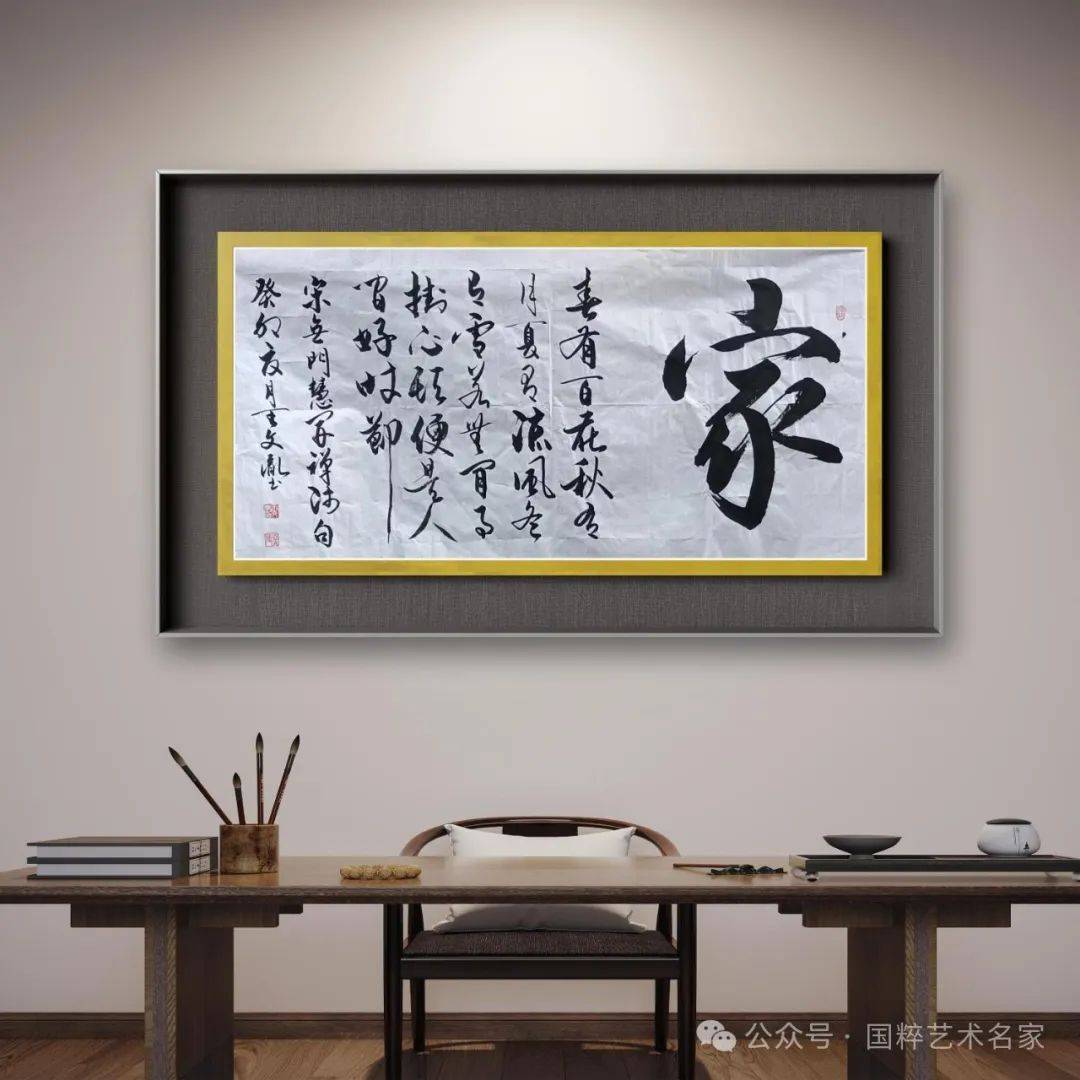 家
春有百花秋有
月夏有涼風冬
有雪若無閒事
掛心頭便是人
間好時節
宋無門慧開禪師句
癸卯夏月王文
公众号·国粹艺术名家